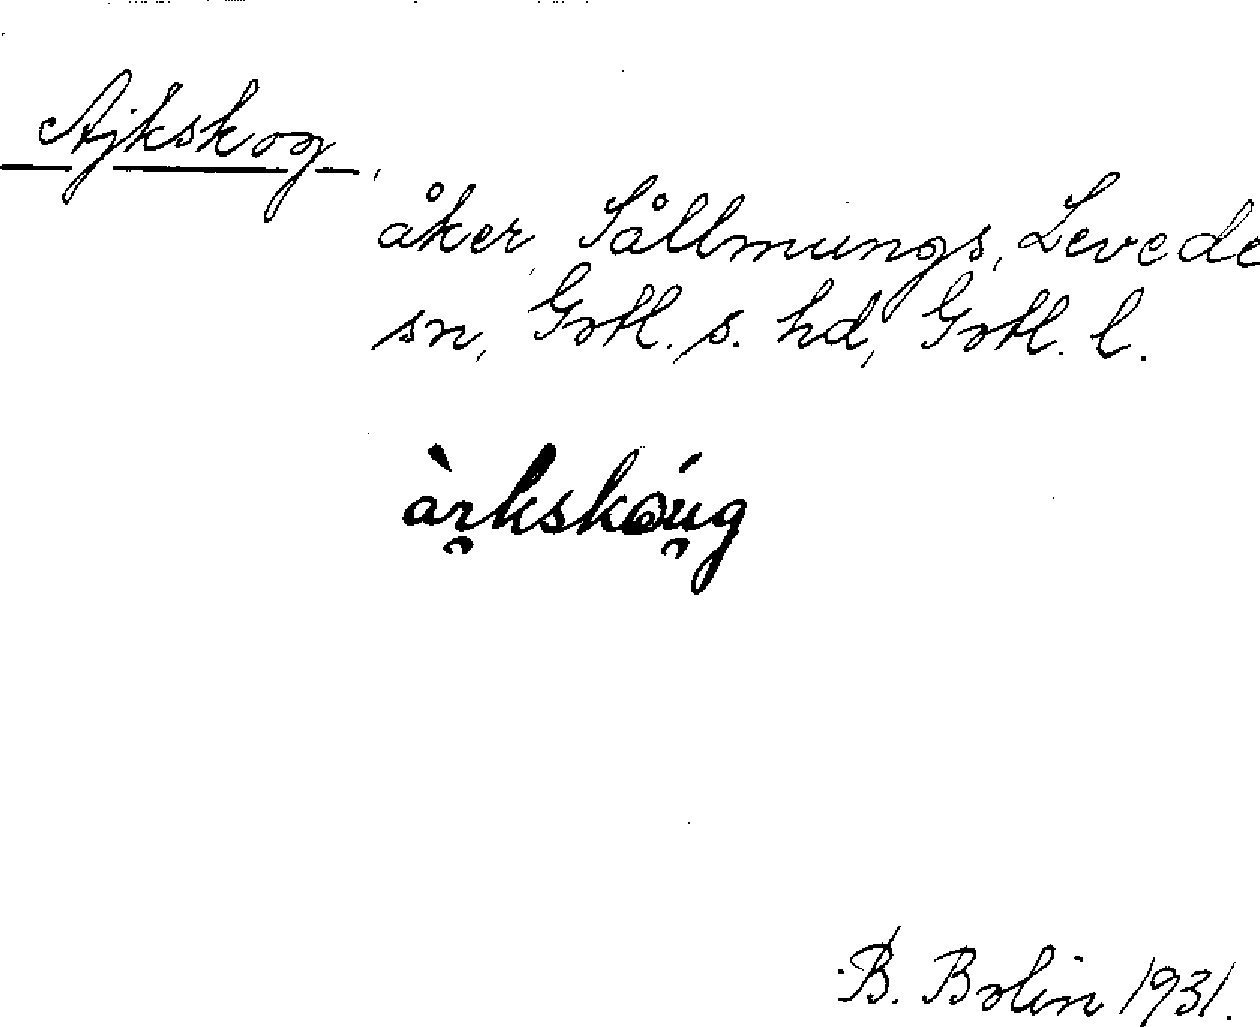 Ajkskog,
åker, Sållmungs, Levede
sn, Gotl. s. hd, Gotl. l.
àı̯kskǿu̯g
B. Bolin 1931.